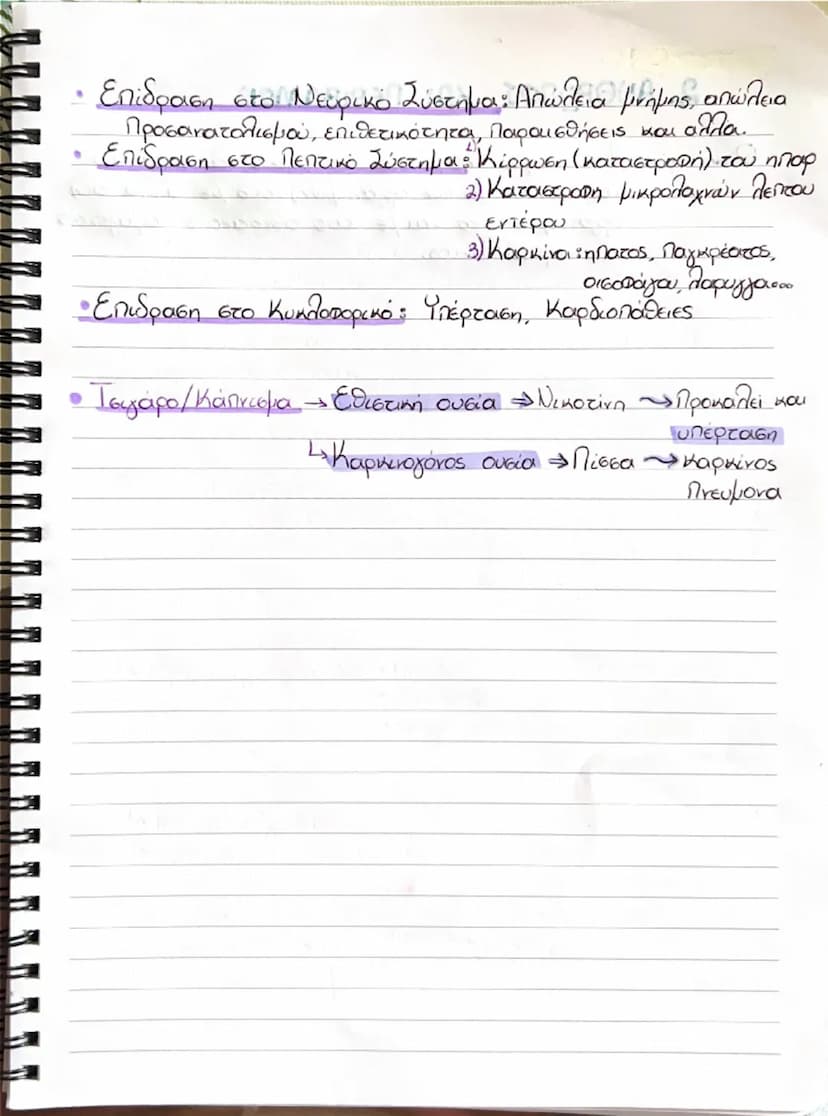 • Επίδραση στο Νευρικό Σύστημα: Απώλεια μνήμης, απώλεια
Προσανατολισμού, επιθετικότητα, Παραισθήσεις και αλλα.
• Επίδραση στο Πεπτικό Σύστημα: 1) Κίρρωση (καταστροφή) του ηπαρ
2) Καταστροφη μικρολαχνών λεπτου
εντέρου
3) Καρκίνοι: ηπατος, Παγκρέατος,
οισοφάγου, λαρυγγα...
• Επιδραση στο Κυκλοφορικό: Υπέρταση, Καρδιοπάθειες
• Τσιγάρο/Κάπνισμα → Εθιστική ουσία ⇒ Νικοτίνη ⤳ Προκαλεί και
υπέρταση
↳ Καρκινογόνος ουσία ⇒ Πίσσα ⤳ καρκίνος
Πνευμονα